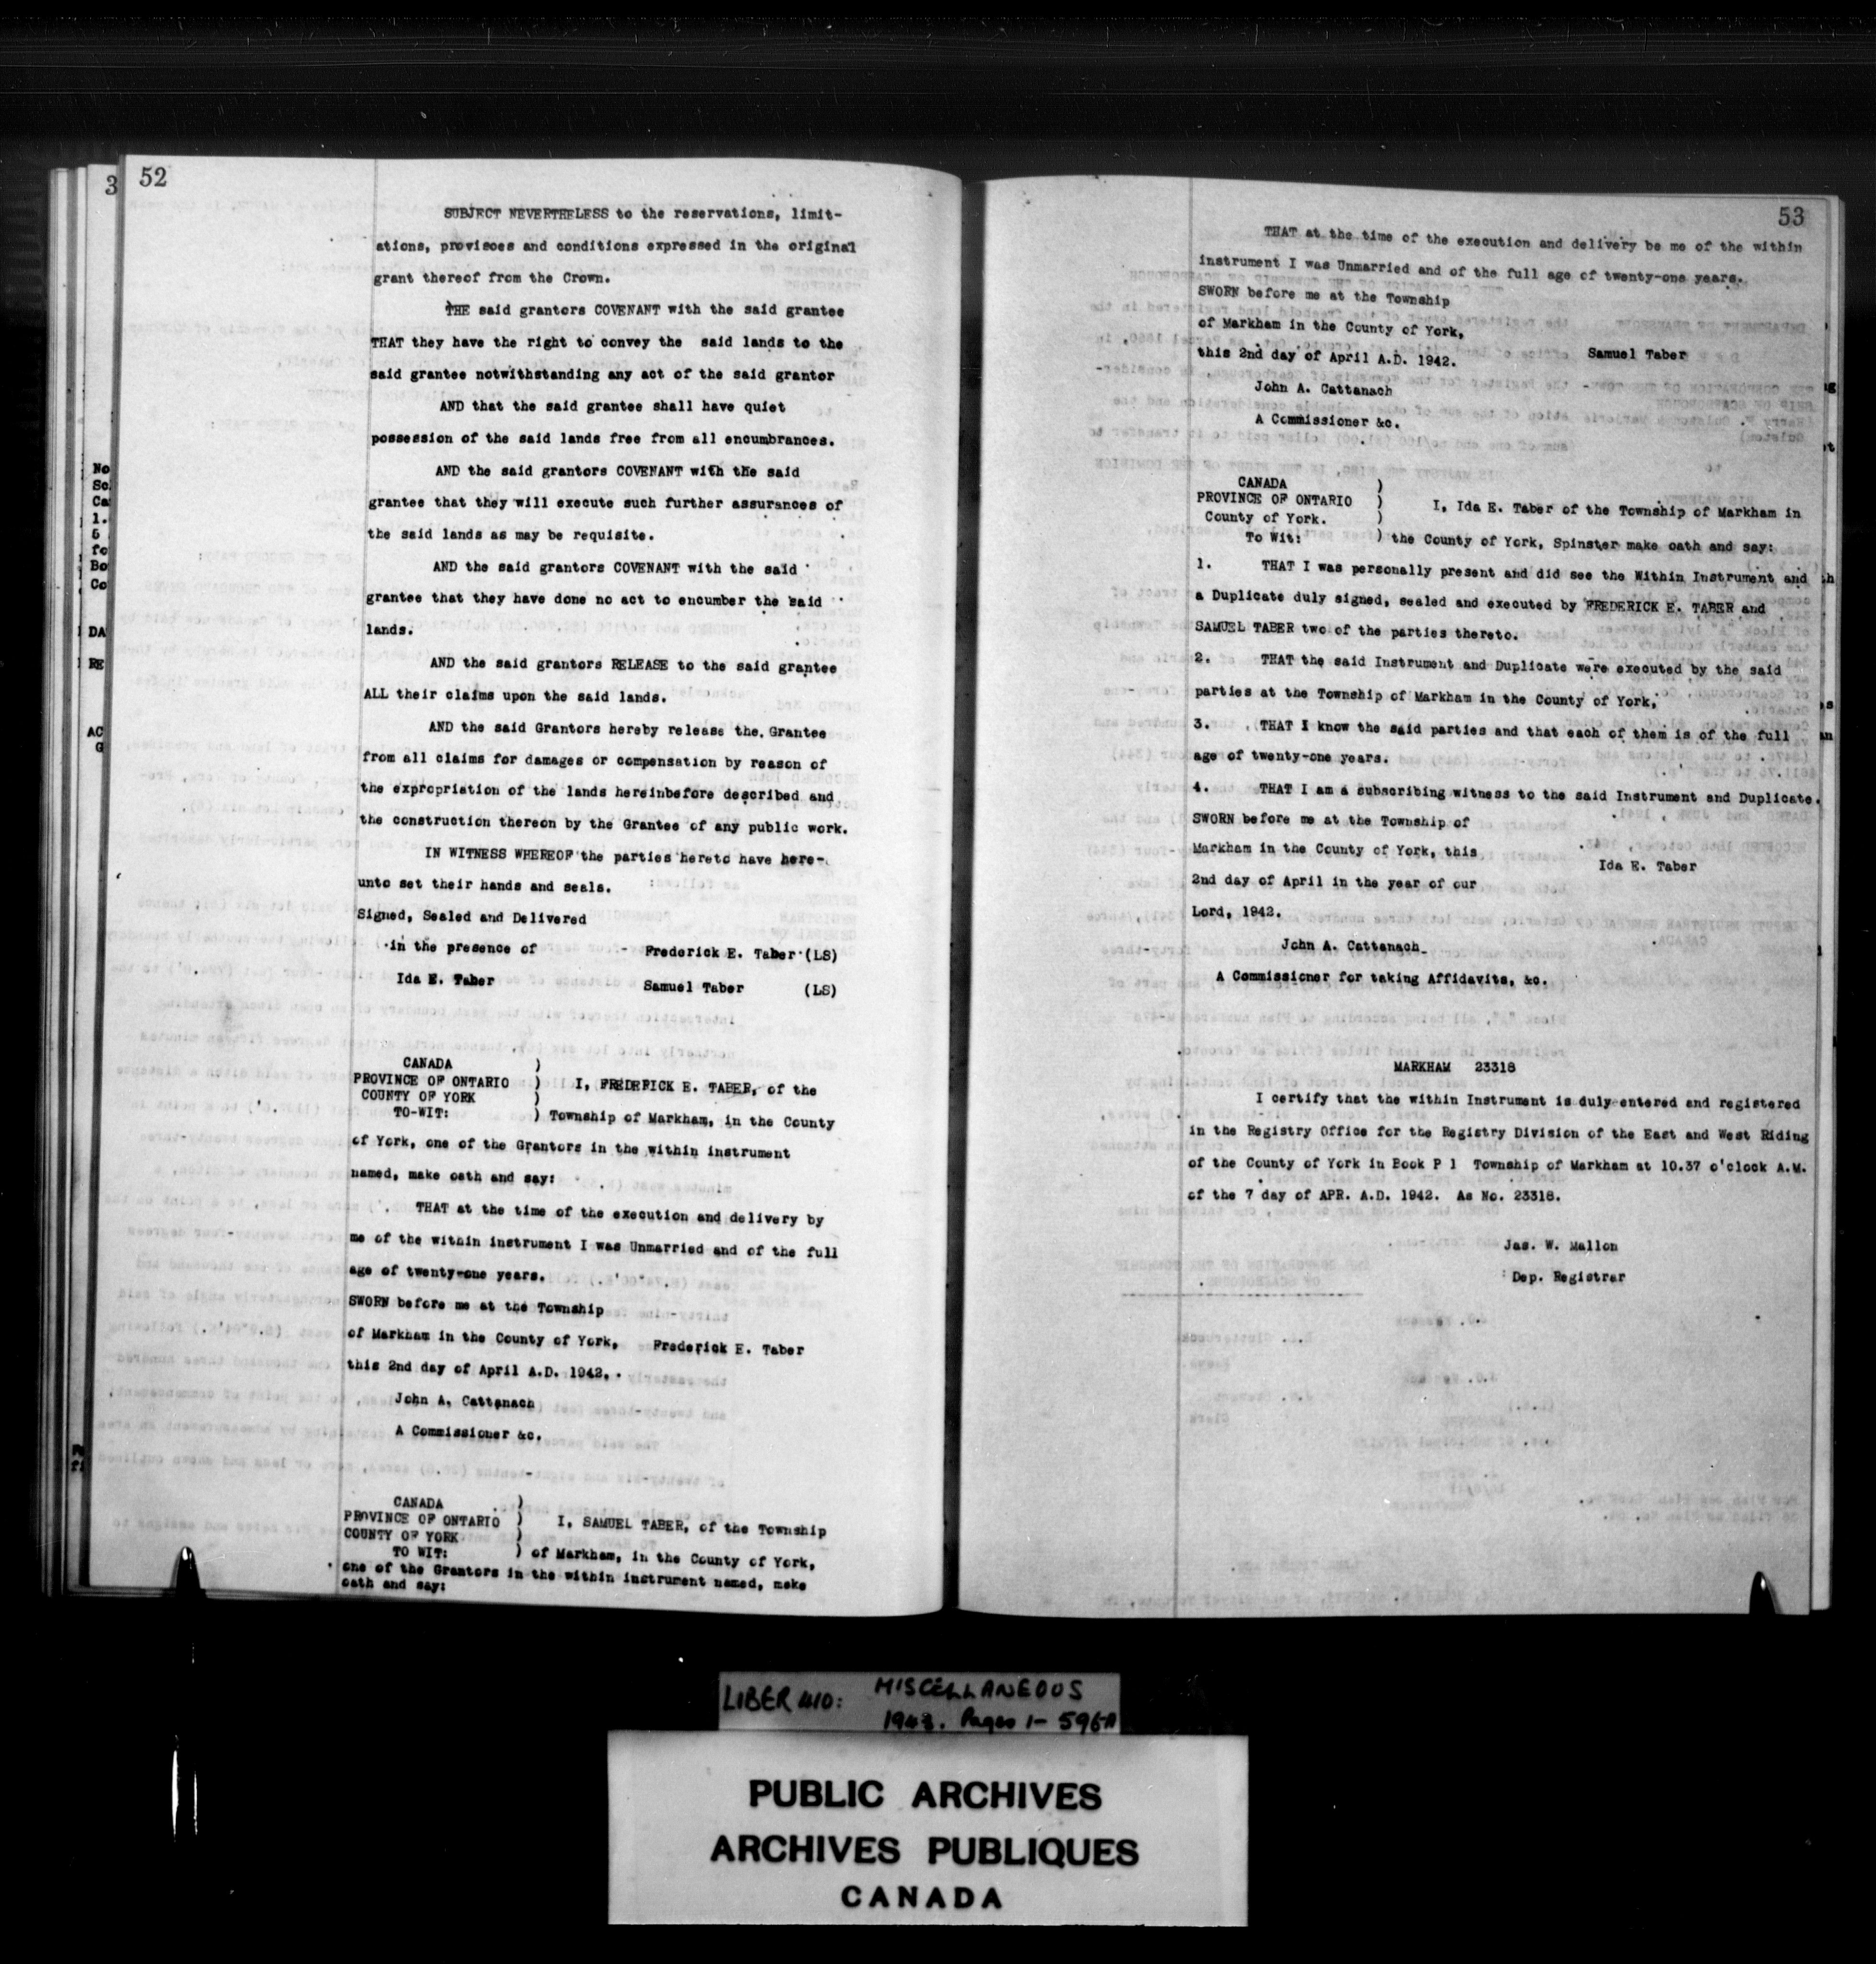 52
SUBJECT NEVERTHELESS to the reservations, limit-
ations, provisoes and conditions expressed in the original
grant thereof from the Crown.
THE said grantors COVENANT with the said grantee
THAT they have the right to convey the said lands to the
said grantee notwithstanding any act of the said grantor
AND that the said grantee shall have quiet
possession of the said lands free from all encumbrances.
AND the said grantors COVENANT with the said
grantee that they will execute such further assurances of
the said lands as may be requisite.
AND the said grantors COVENANT with the said
grantee that they have done no act to encumber the said
lands.
AND the said grantors RELEASE to the said grantee
ALL their claims upon the said lands.
AND the said Grantors hereby release the. Grantee
from all claims for damages or compensation by reason of
the expropriation of the lands hereinbefore described and
the construction thereon by the Grantee of any public work.
IN WITNESS WHEREOF the parties hereto have here-
unto set their hands and seals.
Signed, Sealed and Delivered
in the presence of - Frederick E. Taber (LS)
Ida E. Taber Samuel Taber (LS)
CANADA )
PROVINCE OF ONTARIO ) I, FREDERICK E. TABER, of the
COUNTY OF YORK )
TO-WIT: ) Township of Markham, in the County
of York, one of the Grantors in the within instrument
named, make oath and say:
THAT at the time of the execution and delivery by
me of the within instrument I was Unmarried and of the full
age of twenty-one years.
SWORN before me at the Township
of Markham in the County of York, Frederick E. Taber
this 2nd day of April A.D. 1942.
John A. Cattanach
A Commissioner &c.
CANADA )
PROVINCE OF ONTARIO ) I, SAMUEL TABER, of the Township
COUNTY OF YORK )
TO WIT: ) of Markham, in the County of York,
one of the Grantors in the within instrument named, make
oath and say:
53
THAT at the time of the execution and delivery be me of the within
instrument I was Unmarried and of the full age of twenty-one years.
SWORN before me at the Township
of Markham in the County of York,
this 2nd day of April A.D. 1942. Samuel Taber
John A. Cattanach
A Commissioner &c.
CANADA )
PROVINCE OF ONTARIO ) I, Ida E. Taber of the Township of Markham in
County of York. )
To Wit: ) the County of York, Spinster make oath and say:
1. THAT I was personally present and did see the Within Instrument and
a Duplicate duly signed, sealed and executed by FREDERICK E. TABER and
SAMUEL TABER two of the parties thereto.
2. THAT the said Instrument and Duplicate were executed by the said
parties at the Township of Markham in the County of York,
3. THAT I know the said parties and that each of them is of the full
age of twenty-one years.
4. THAT I am a subscribing witness to the said Instrument and Duplicate.
SWORN before me at the Township of
Markham in the County of York, this
2nd day of April in the year of our Ida E. Taber
Lord, 1942.
John A. Cattanach
A Commissioner for taking Affidavits, &c.
MARKHAM 23318
I certify that the within Instrument is duly entered and registered
in the Registry Office for the Registry Division of the East and West Riding
of the County of York in Book P 1 Township of Markham at 10.37 o'clock A.M.
of the 7 day of APR. A.D. 1942. As No. 23318.
Jas. W. Mallon
Dep. Registrar
LIBER 410: MISCELLANEOUS
Pages 1- 596A
PUBLIC ARCHIVES
ARCHIVES PUBLIQUES
CANADA